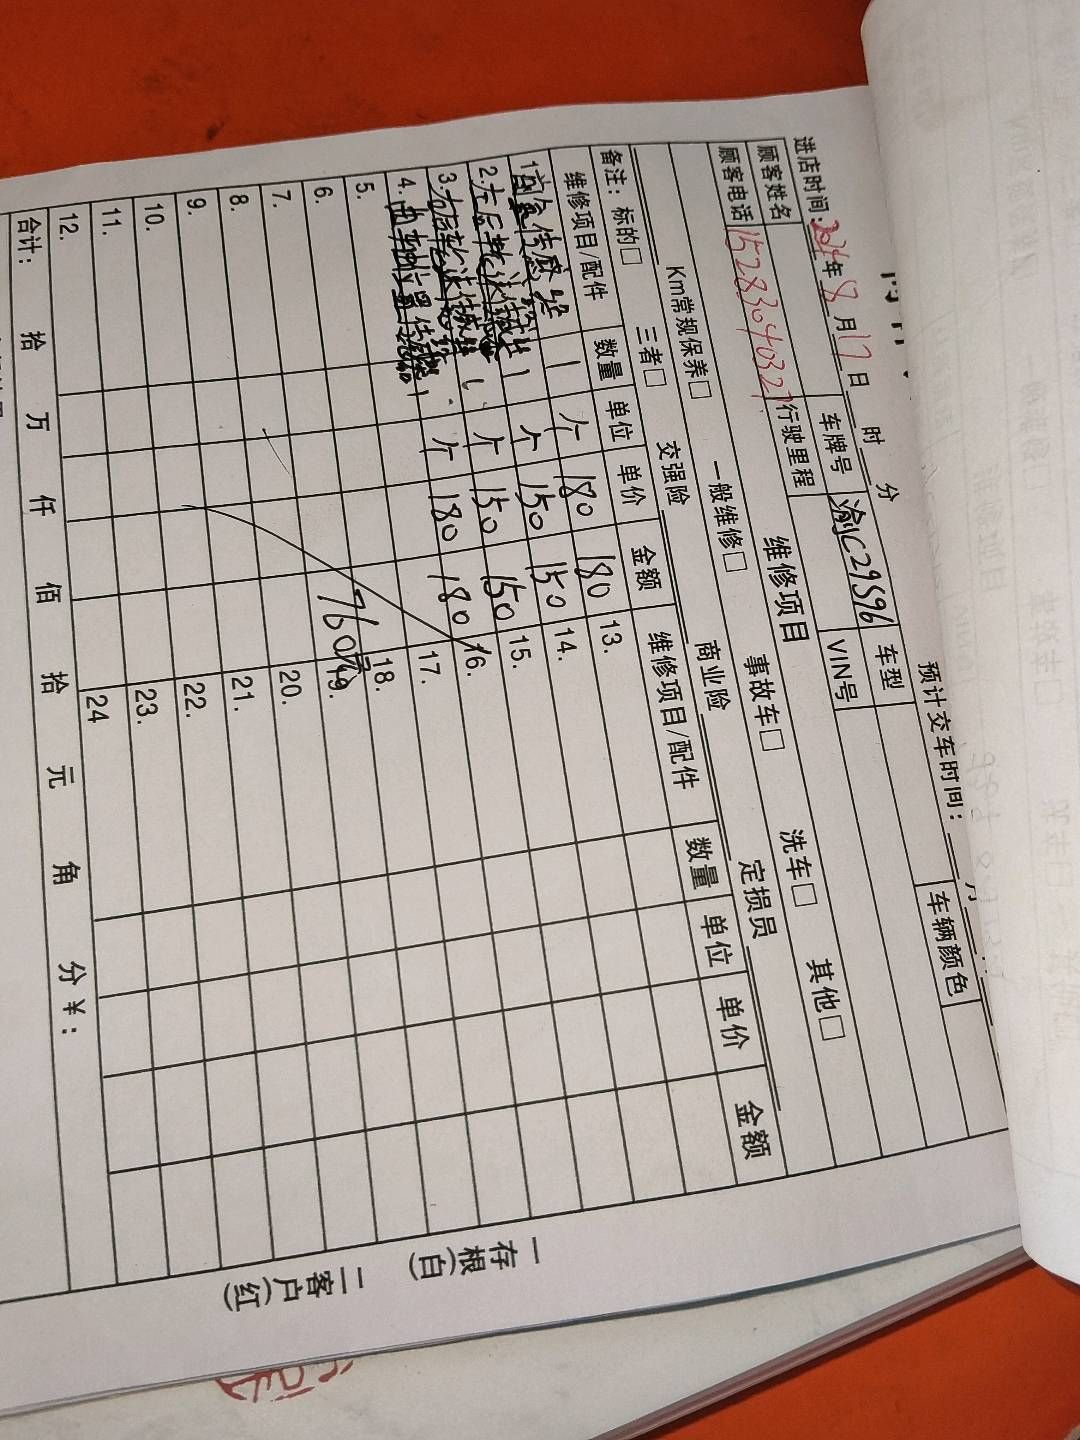 进店时间:2024年8月17日 时 分 预计交车时间: 月
顾客姓名 车牌号 渝C29596 车型 车辆颜色
顾客电话 15283040327 行驶里程 VIN号
维修项目
Km常规保养□ 一般维修□ 事故车□ 洗车□ 其他□
备注:标的□ 三者□ 交强险 商业险 定损员
维修项目/配件 数量 单位 单价 金额 维修项目/配件 数量 单位 单价 金额
1. 1 个 180 180 13.
2.左后轮速传感器 1 个 150 150 14.
3.右后轮速传感器 1 个 150 150 15.
4.曲轴位置传感器 1 个 180 180 16.
5. 17.
6. 18.
7. 760元 19.
8. 20.
9. 21.
10. 22.
11. 23.
12. 24
合计: 拾 万 仟 佰 拾 元 角 分 ¥:
一存根(白) 二客户(红)